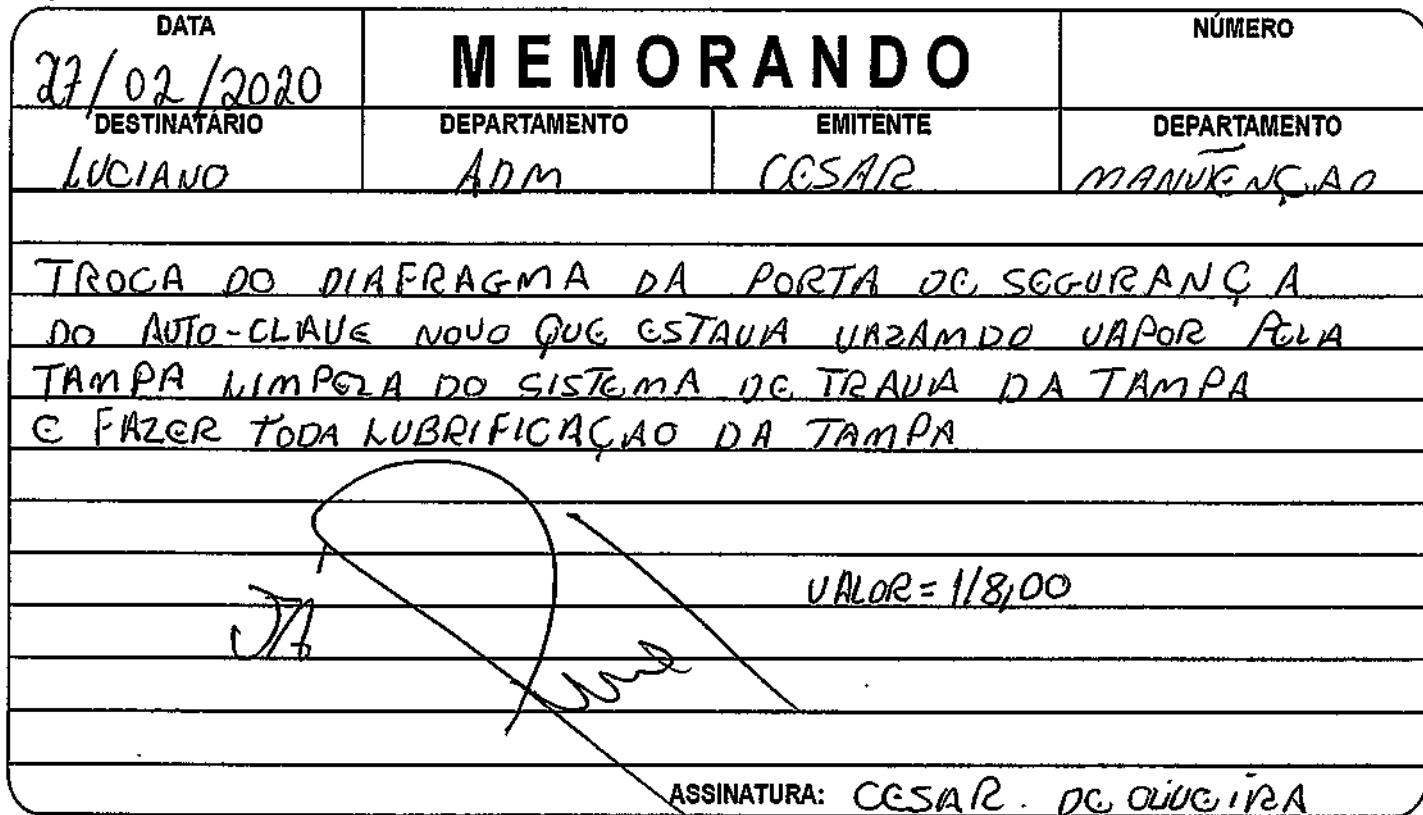 DATA MEMORANDO NÚMERO
27/02/2020
DESTINATÁRIO DEPARTAMENTO EMITENTE DEPARTAMENTO
LUCIANO ADM CESAR MANUTENÇÃO
TROCA DO DIAFRAGMA DA PORTA DE SEGURANÇA
DO AUTO-CLAVE NOVO QUE ESTAVA VAZAMDO VAPOR PELA
TAMPA LIMPEZA DO SISTEMA DE TRAVA DA TAMPA
E FAZER TODA LUBRIFICAÇAO DA TAMPA
VALOR = 118,00
ASSINATURA: CESAR. DE OLIVEIRA